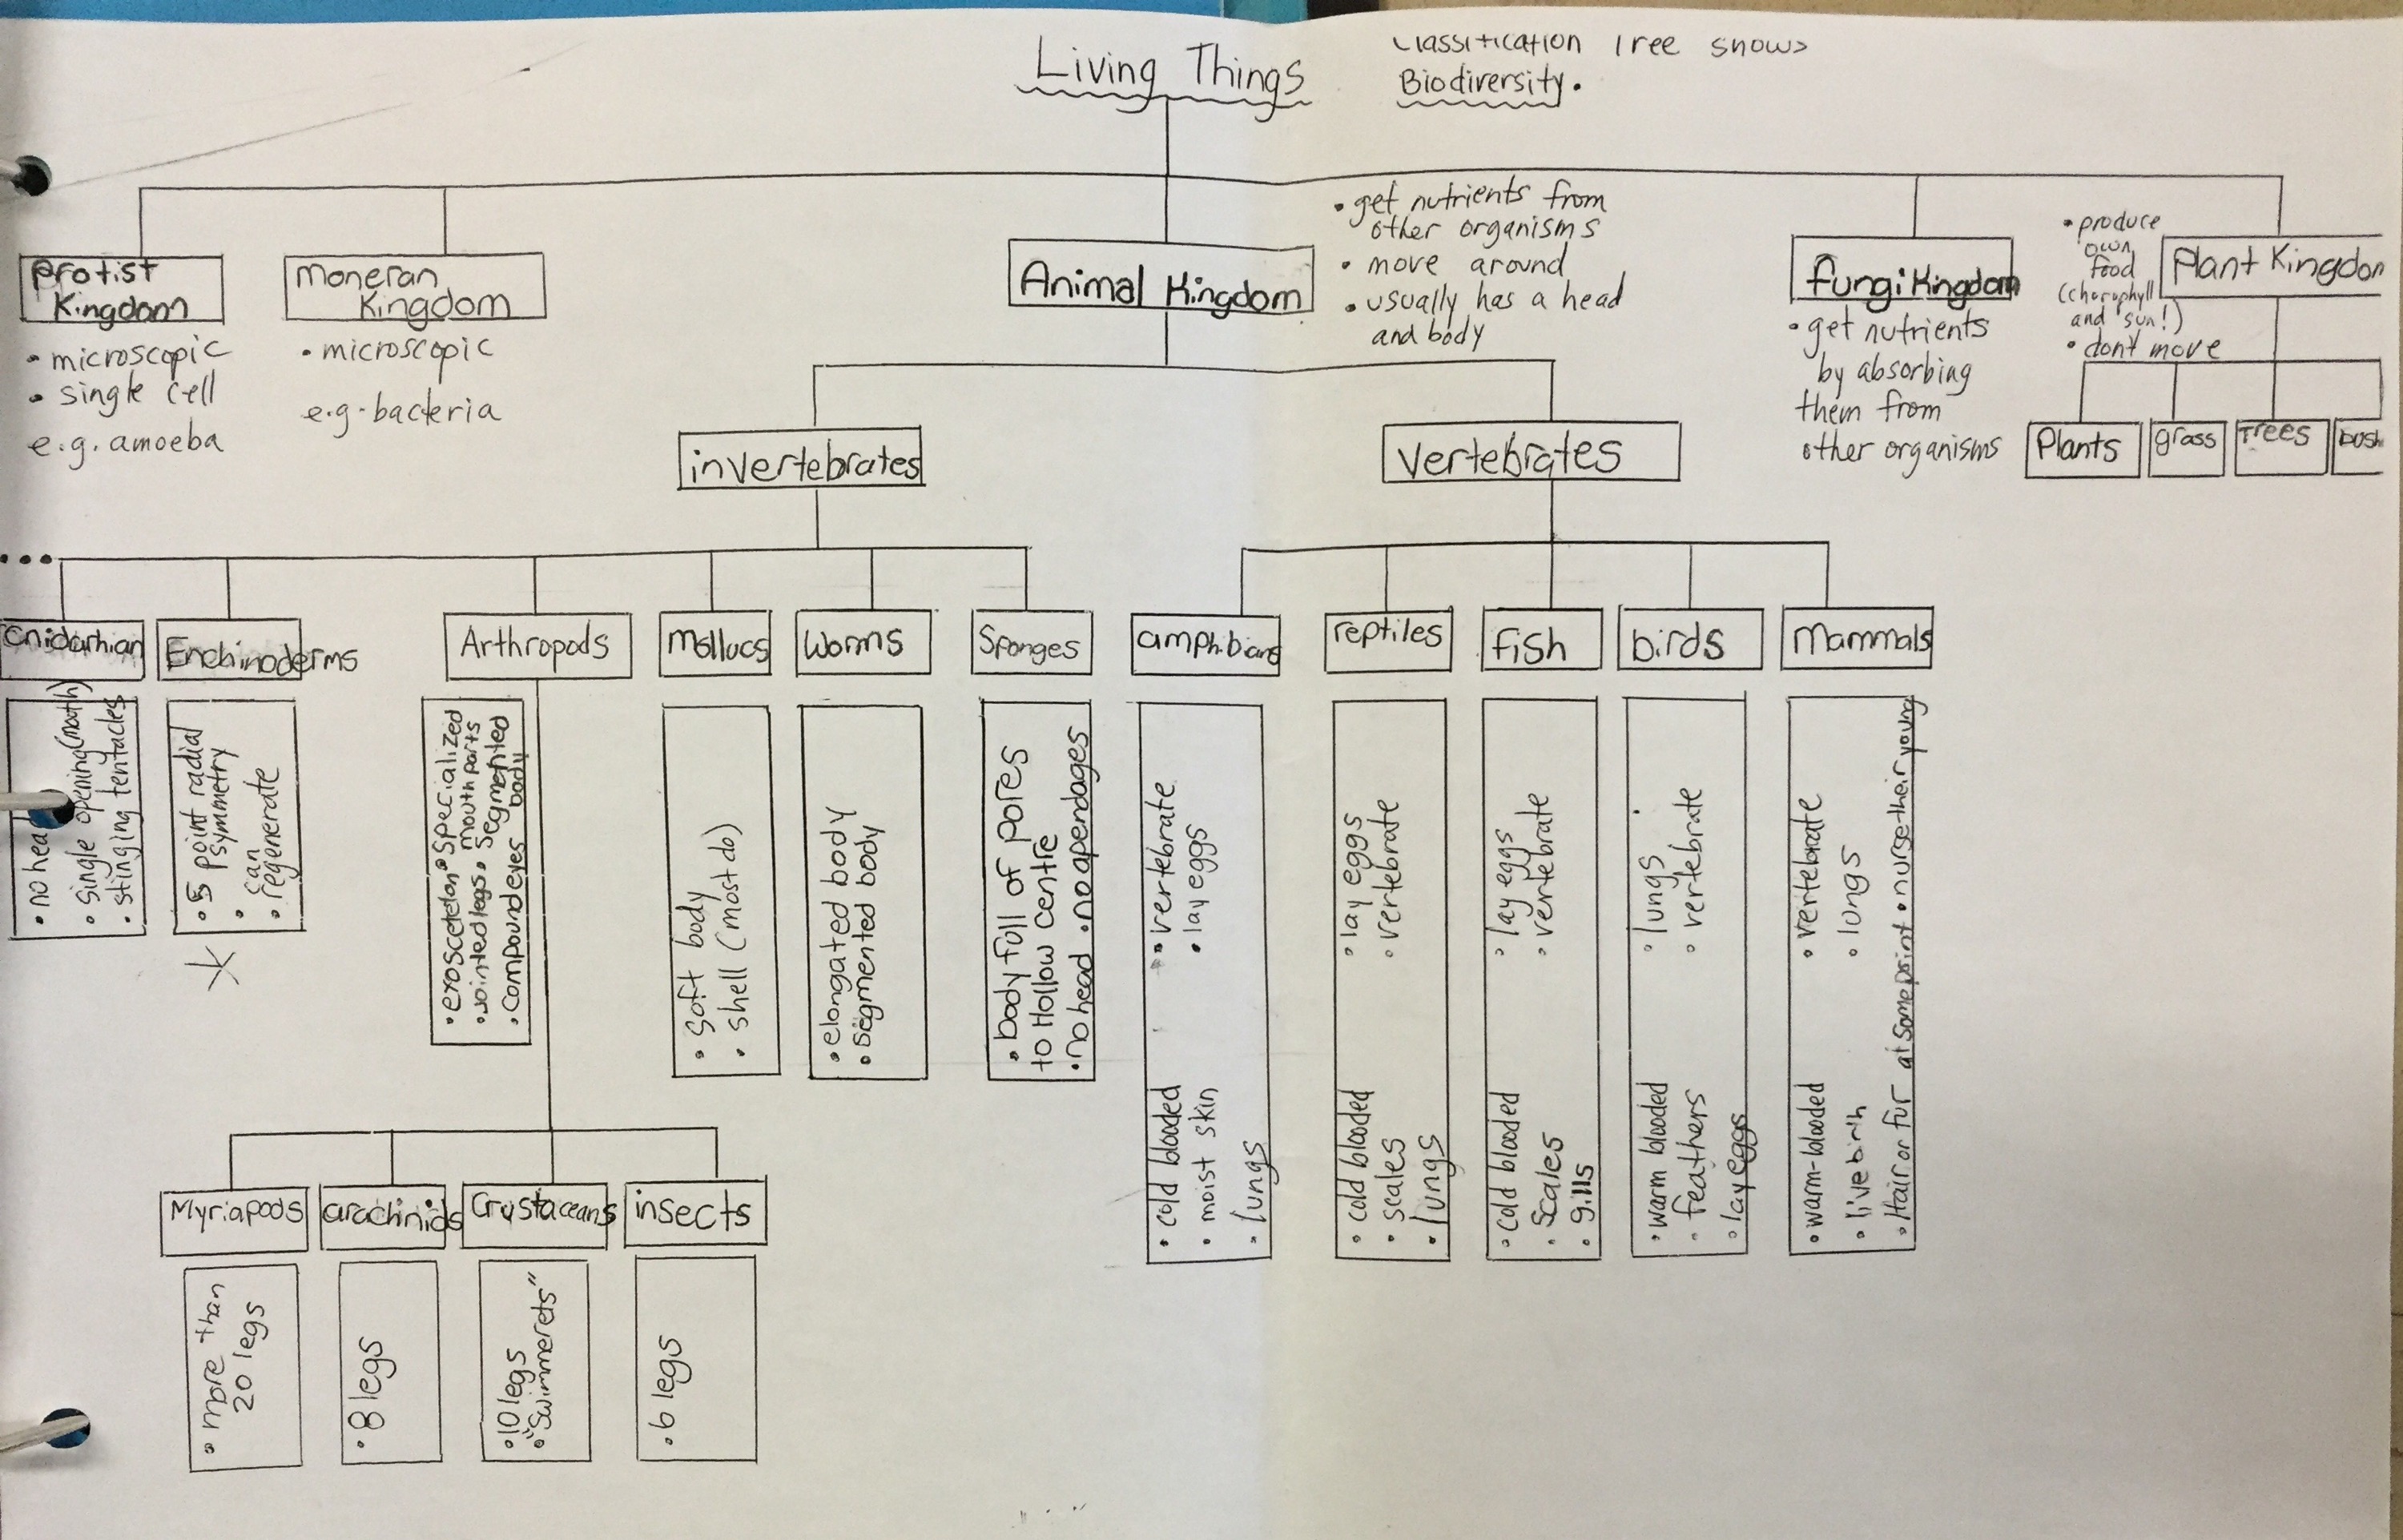 Living Things
Classification Tree shows
Biodiversity.
Protist
Kingdom
• microscopic
• single cell
e.g. amoeba
Moneran
Kingdom
• microscopic
e.g. bacteria
Animal Kingdom
• get nutrients from
other organisms
• move around
• usually has a head
and body
Fungi Kingdom
• get nutrients
by absorbing
them from
other organisms
• produce
own
food
(chorophyll
and sun!)
• don't move
Plant Kingdom
Plants
grass
Trees
bush
invertebrates
vertebrates
...
Cnidarhian
• no head
• single opening (mouth)
• stinging tentacles
Enchinoderms
• 5 point radial
symmetry
• can
• regenerate
Arthropods
• exoscteleton • specialized
mouth parts
• jointed legs • segmented
body
• compound eyes
Mollucs
• soft body
• shell (most do)
Worms
• elongated body
• segmented body
Sponges
• body full of pores
to Hollow centre
• no head • no apendages
amphibians
• cold blooded • vertebrate
• moist skin • lay eggs
• lungs
reptiles
• cold blooded • lay eggs
• scales • vertebrate
• lungs
fish
• cold blooded • lay eggs
• scales • vertebrate
• gills
birds
• warm blooded • lungs
• feathers • vertebrate
• lay eggs
Mammals
• warm-blooded • vertebrate
• live birth • lungs
• Hair or fur at some point • nurse their young
Myriapods
• more than
20 legs
arachinids
• 8 legs
Crustaceans
• 10 legs
• "Swimmerets"
insects
• 6 legs